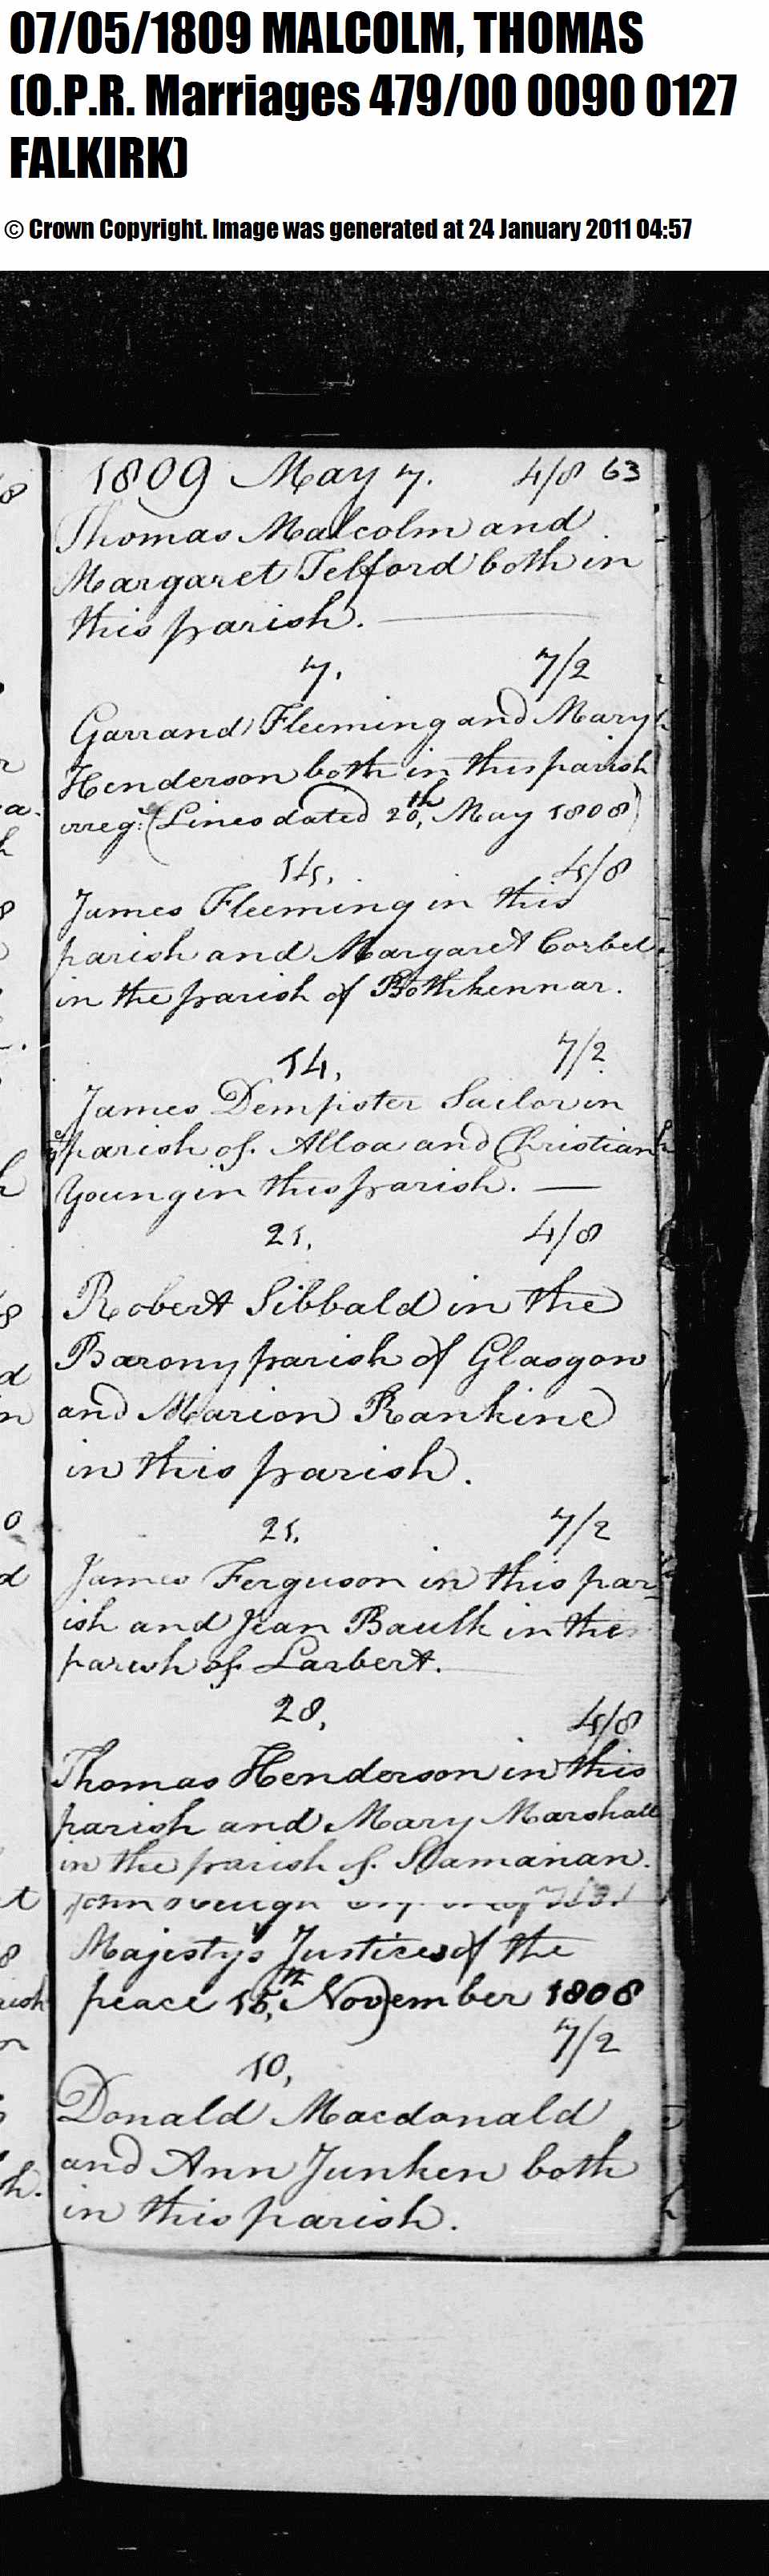 07/05/1809 MALCOLM, THOMAS
(O.P.R. Marriages 479/00 0090 0127
FALKIRK)
© Crown Copyright. Image was generated at 24 January 2011 04:57
1809 May 7. 4/8 63
Thomas Malcolm and
Margaret Telford both in
this parish.
7. 7/2
Garrand Fleeming and Mary
Henderson both in this parish
irreg: (Lines dated 20th, May 1808)
14, 4/8
James Fleeming in this
parish and Margaret Corbet
in the parish of Bothkennar.
14, 7/2
James Dempster Sailor in
ye parish of Alloa and Christian
Young in this parish. —
21, 4/8
Robert Sibbald in the
Barony parish of Glasgow
and Marion Rankine
in this parish.
21. 7/2
James Ferguson in this par-
ish and Jean Baulk in the
parish of Larbert.
28, 4/8
Thomas Henderson in this
parish and Mary Marshall
in the parish of Slamanan.
John
Majestys Justices of the
peace 15,th November 1808
7/2
10,
Donald Macdonald
and Ann Junken both
in this parish.